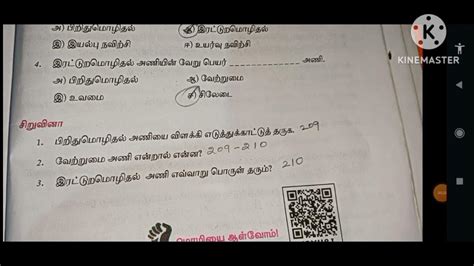 அ) பிறிதுமொழிதல் ஆ) இரட்டுறமொழிதல்
இ) இயல்பு நவிற்சி ஈ) உயர்வு நவிற்சி
4. இரட்டுறமொழிதல் அணியின் வேறு பெயர் ______________ அணி.
அ) பிறிதுமொழிதல் ஆ) வேற்றுமை
இ) உவமை ஈ) சிலேடை
சிறுவினா
1. பிறிதுமொழிதல் அணியை விளக்கி எடுத்துக்காட்டுத் தருக. 209
2. வேற்றுமை அணி என்றால் என்ன? 209-210
3. இரட்டுறமொழிதல் அணி எவ்வாறு பொருள் தரும்? 210
மொழியை ஆள்வோம்!
KINEMASTER